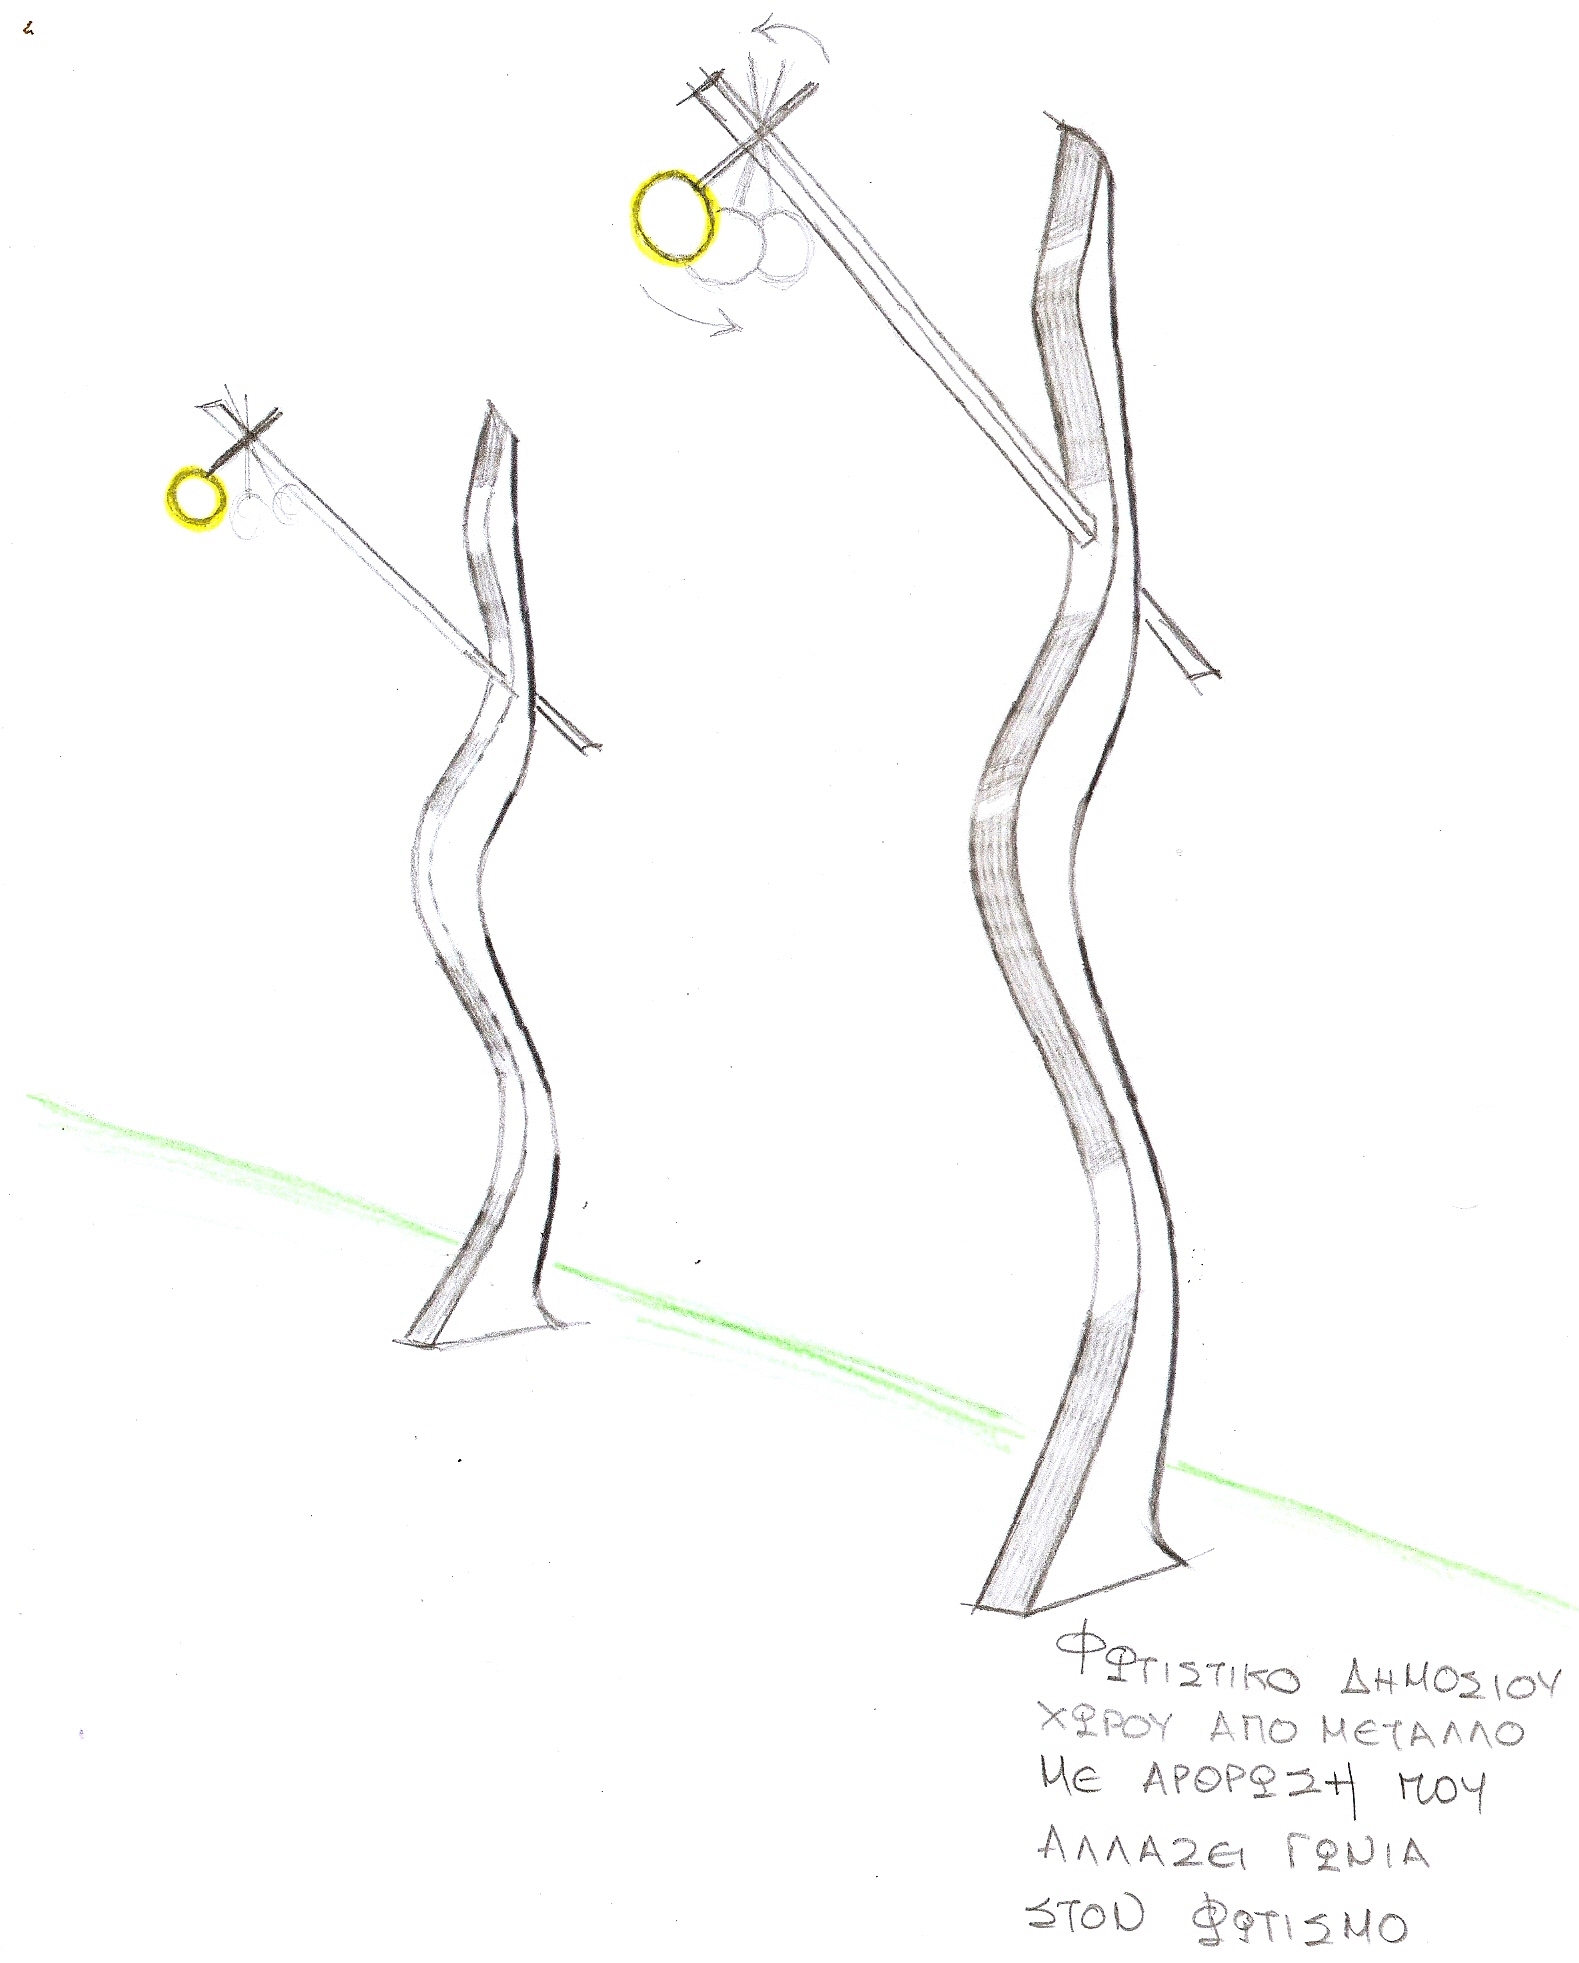 ΦΩΤΙΣΤΙΚΟ ΔΗΜΟΣΙΟΥ
ΧΩΡΟΥ ΑΠΟ ΜΕΤΑΛΛΟ
ΜΕ ΑΡΘΡΩΣΗ ΠΟΥ
ΑΛΛΑΖΕΙ ΓΩΝΙΑ
ΣΤΟΝ ΦΩΤΙΣΜΟ